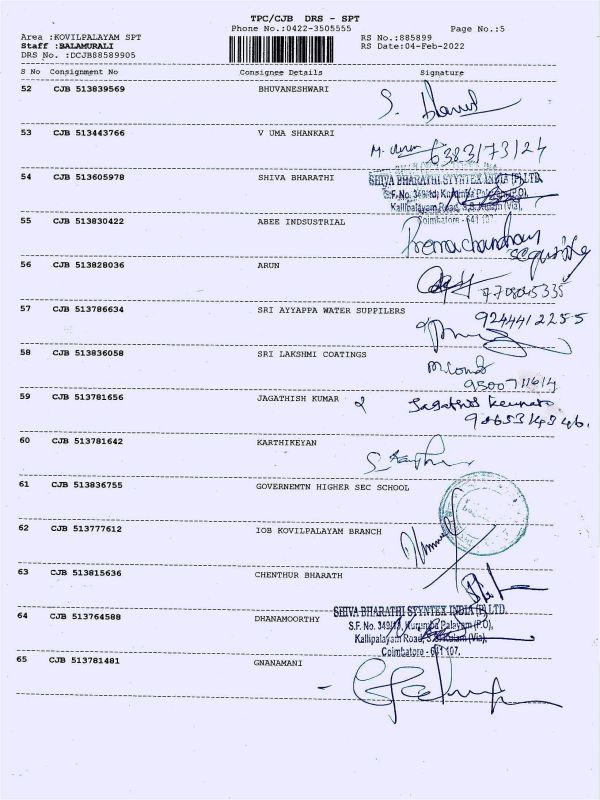 TPC/CJB DRS - SPT
Phone No.:0422-3505555 Page No.:5
Area :KOVILPALAYAM SPT RS No.:885899
Staff :BALAMURALI RS Date:04-Feb-2022
DRS No. :DCJB88589905
S No Consignment No Consignee Details Signature
52 CJB 513839569 BHUVANESHWARI
53 CJB 513443766 V UMA SHANKARI
6383173124
54 CJB 513605978 SHIVA BHARATHI SHIVA BHARATHI STYNTEX INDIA (P) LTD.
S.F. No. 349/1d, Kurumba Palayam (P.O),
Kallipalayam Road, S.S. Kulam (Via),
Coimbatore - 641 107.
55 CJB 513830422 ABEE INDSUSTRIAL Premachandhan
security
56 CJB 513828036 ARUN
7708045335
57 CJB 513786634 SRI AYYAPPA WATER SUPPILERS 9244412255
58 CJB 513836058 SRI LAKSHMI COATINGS
9500711614
59 CJB 513781656 JAGATHISH KUMAR 2 Jagathish Kumar
9865314346.
60 CJB 513781642 KARTHIKEYAN
61 CJB 513836755 GOVERNEMTN HIGHER SEC SCHOOL
62 CJB 513777612 IOB KOVILPALAYAM BRANCH
63 CJB 513815636 CHENTHUR BHARATH
64 CJB 513764588 DHANAMOORTHY SHIVA BHARATHI STYNTEX INDIA (P) LTD.
S.F. No. 349/1d, Kurumba Palayam (P.O),
Kallipalayam Road, S.S. Kulam (Via),
Coimbatore - 641 107.
65 CJB 513781481 GNANAMANI